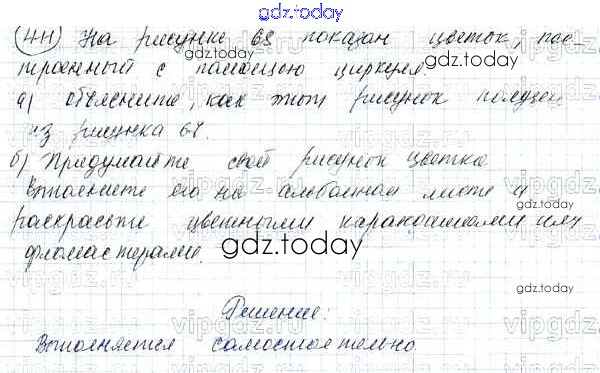 gdz.today
(411) На рисунке 68 показан цветок, пос-
троенный с помощью циркуля.
gdz.today
а) Объясните, как этот рисунок получен
из рисунка 67.
б) Придумайте свой рисунок цветка
выполните его на альбомном листе и
раскрасьте цветными карандашами или
фломастерами.
gdz.today
gdz.today
Решение:
Выполняется самостоятельно.
gdz.today